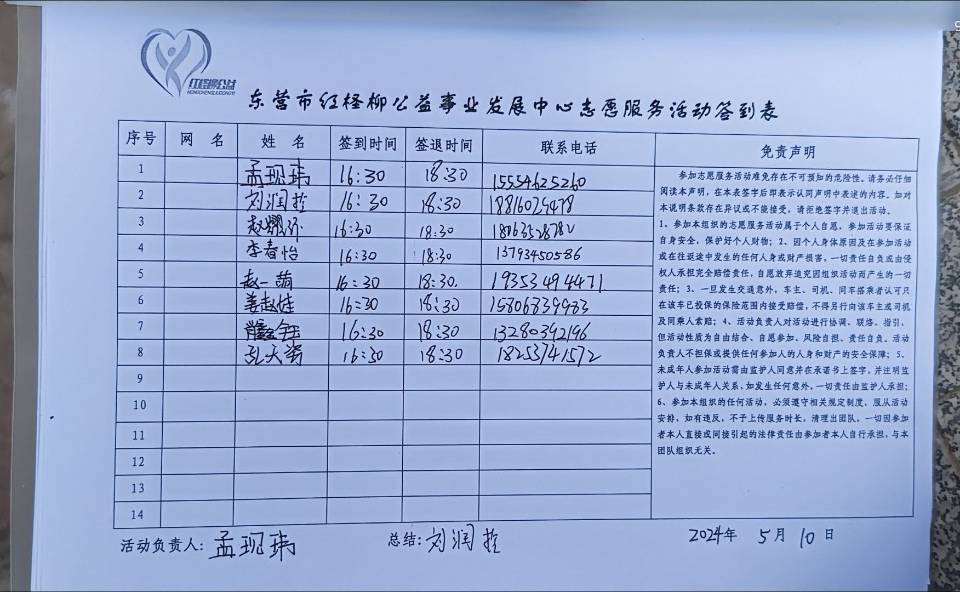 红柽柳公益
HONGCHENGLIUGONGYI
东营市红柽柳公益事业发展中心志愿服务活动签到表
序号 网 名 姓 名 签到时间 签退时间 联系电话 免责声明
1 孟现玮 16:30 18:30 15554625260
2 刘润 16:30 18:30 18816029478
3 16:30 18:30
4 李春怡 16:30 18:30 13793450586
5 赵一萌 16:30 18:30. 19353494471
6 姜赵娃 16:30 18:30 15806839983
7 16:30 18:30 13280392196
8 孔天 16:30 18:30 18253741572
9
10
11
12
13
14
参加志愿服务活动难免存在不可预知的危险性。请务必仔细
阅读本声明，在本表签字后即表示认同声明中表述的内容。如对
本说明条款存在异议或不能接受，请拒绝签字并退出活动。
1、参加本组织的志愿服务活动属于个人自愿。参加活动要保证
自身安全，保护好个人财物；2、因个人身体原因及在参加活动
或在往返途中发生的任何人身或财产损害，一切责任自负或由侵
权人承担完全赔偿责任，自愿放弃追究因组织活动而产生的一切
责任；3、一旦发生交通意外，车主、司机、同车搭乘者认可只
在该车已投保的保险范围内接受赔偿，不得另行向该车主或司机
及同乘人索赔；4、活动负责人对活动进行协调、联络、指引，
但活动性质为自由结合、自愿参加、风险自担、责任自负。活动
负责人不担保或提供任何参加人的人身和财产的安全保障；5、
未成年人参加活动需由监护人同意并在承诺书上签字，并注明监
护人与未成年人关系，如发生任何意外，一切责任由监护人承担；
6、参加本组织的任何活动，必须遵守相关规定制度，服从活动
安排，如有违反，不予上传服务时长，清理出团队，一切因参加
者本人直接或间接引起的法律责任由参加者本人自行承担，与本
团队组织无关。
活动负责人：孟现玮 总结：刘润 2024年 5月 10日